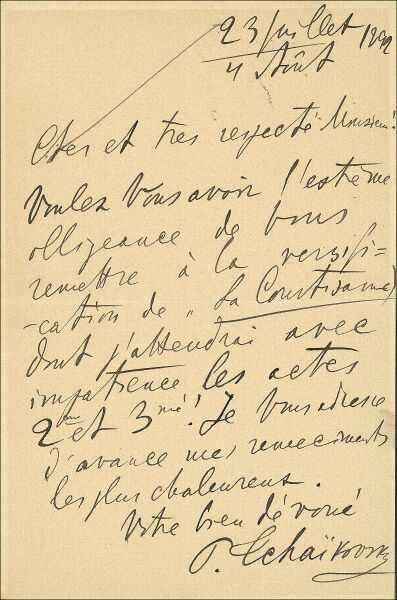 23 Juillet 1892
4 Août
Cher et très respecté Monsieur!
Voulez Vous avoir l'extrème
obligeance de Vous
remettre à la versifi=
-cation de „La Courtisane"
dont j'attendrai avec
impatience les actes
2me et 3me! Je Vous adresse
d'avance mes remerciments
les plus chaleureux.
Votre bien dévoué
P. Tchaïkovsky